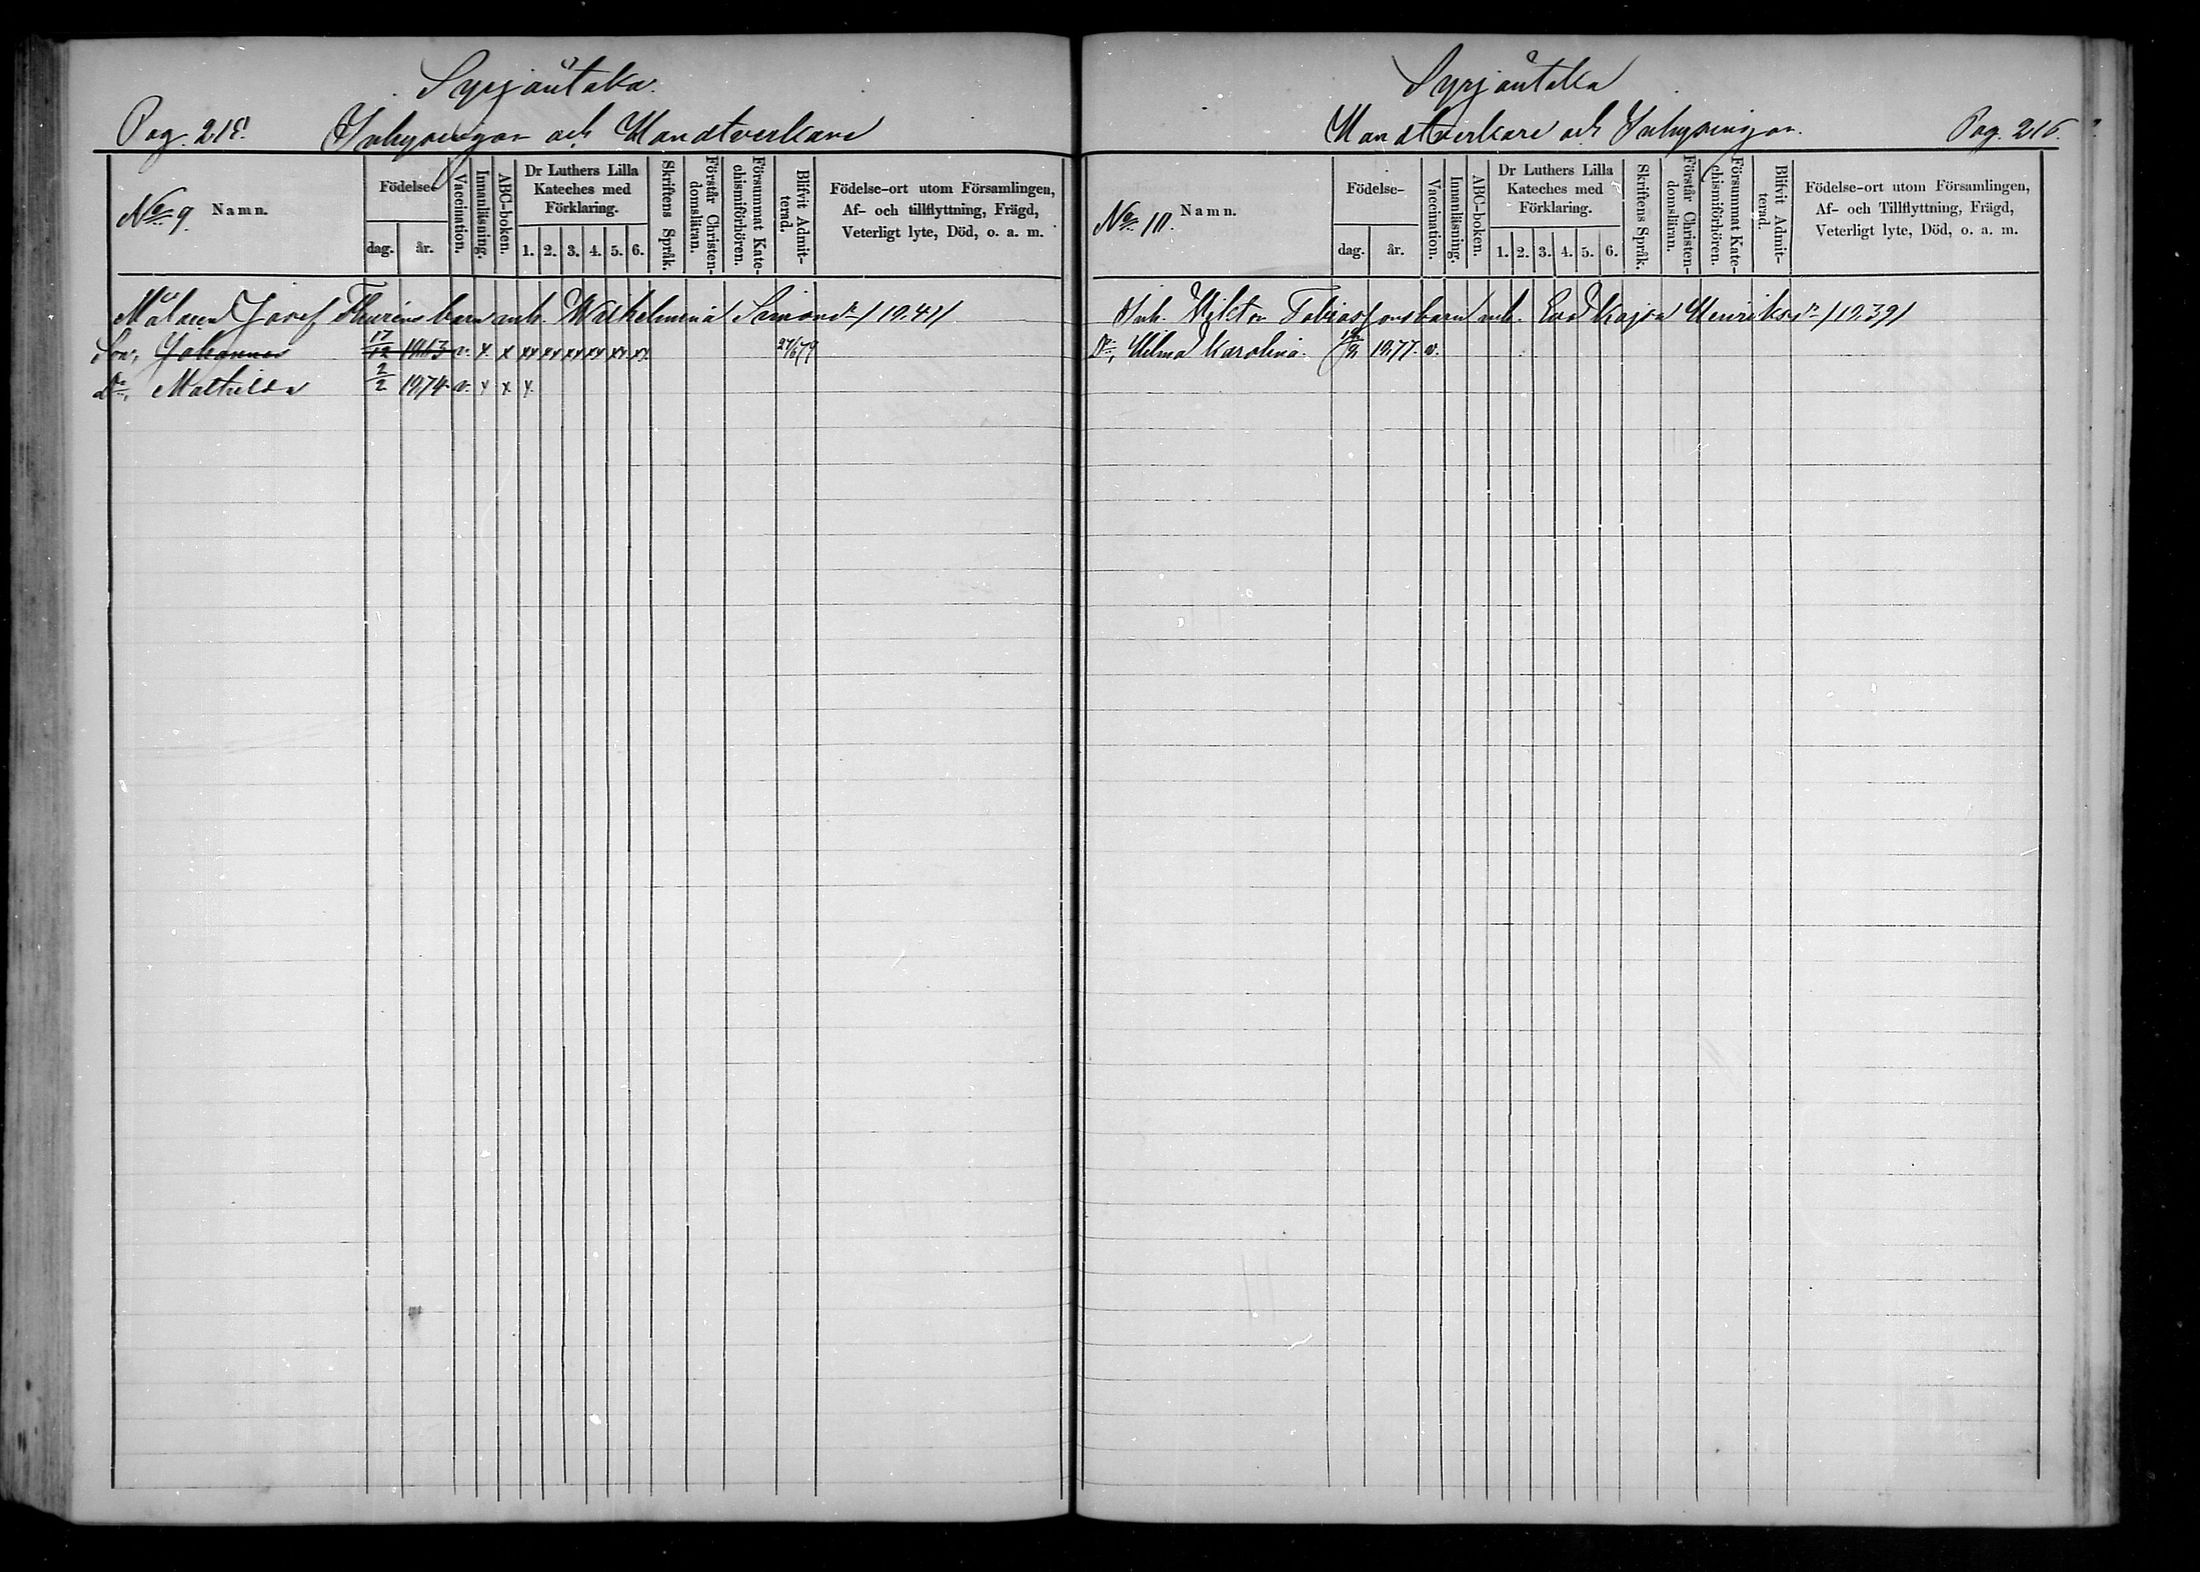 Syrjäntaka.
Pag. 215. Inhysingar och Handtverkare
No 9. Namn.
Födelse- dag. år.
Vaccination.
Innanläsning.
ABC-boken.
Dr Luthers Lilla Kateches med Förklaring.
1. 2. 3. 4. 5. 6.
Skriftens Språk.
Förstår Christendomsläran.
Försummat Katechismiförhören.
Blifvit Admitterad.
Födelse-ort utom Församlingen, Af- och tillflyttning, Frägd, Veterligt lyte, Död, o. a. m.
Målaren Josef Thurens barn m.h. Wilhelmina Simonsr /1841/
Son, Johannes 17/12 1863 v. x x xx xx xx xx xx xx 24/6 79
Dr, Mathilda 2/2 1874 v. x x x
Syrjäntaka
Handtverkare och Inhysingar. Pag. 216.
No 10. Namn.
Födelse- dag. år.
Vaccination.
Innanläsning.
ABC-boken.
Dr Luthers Lilla Kateches med Förklaring.
1. 2. 3. 4. 5. 6.
Skriftens Språk.
Förstår Christendomsläran.
Försummat Katechismiförhören.
Blifvit Admitterad.
Födelse-ort utom Församlingen, Af- och Tillflyttning, Frägd, Veterligt lyte, Död, o. a. m.
Inh. Viktor Tobiassons barn m.h. Eva Kajsa Henriksr /1839/
Dr, Hilma Karolina. 1877 v.